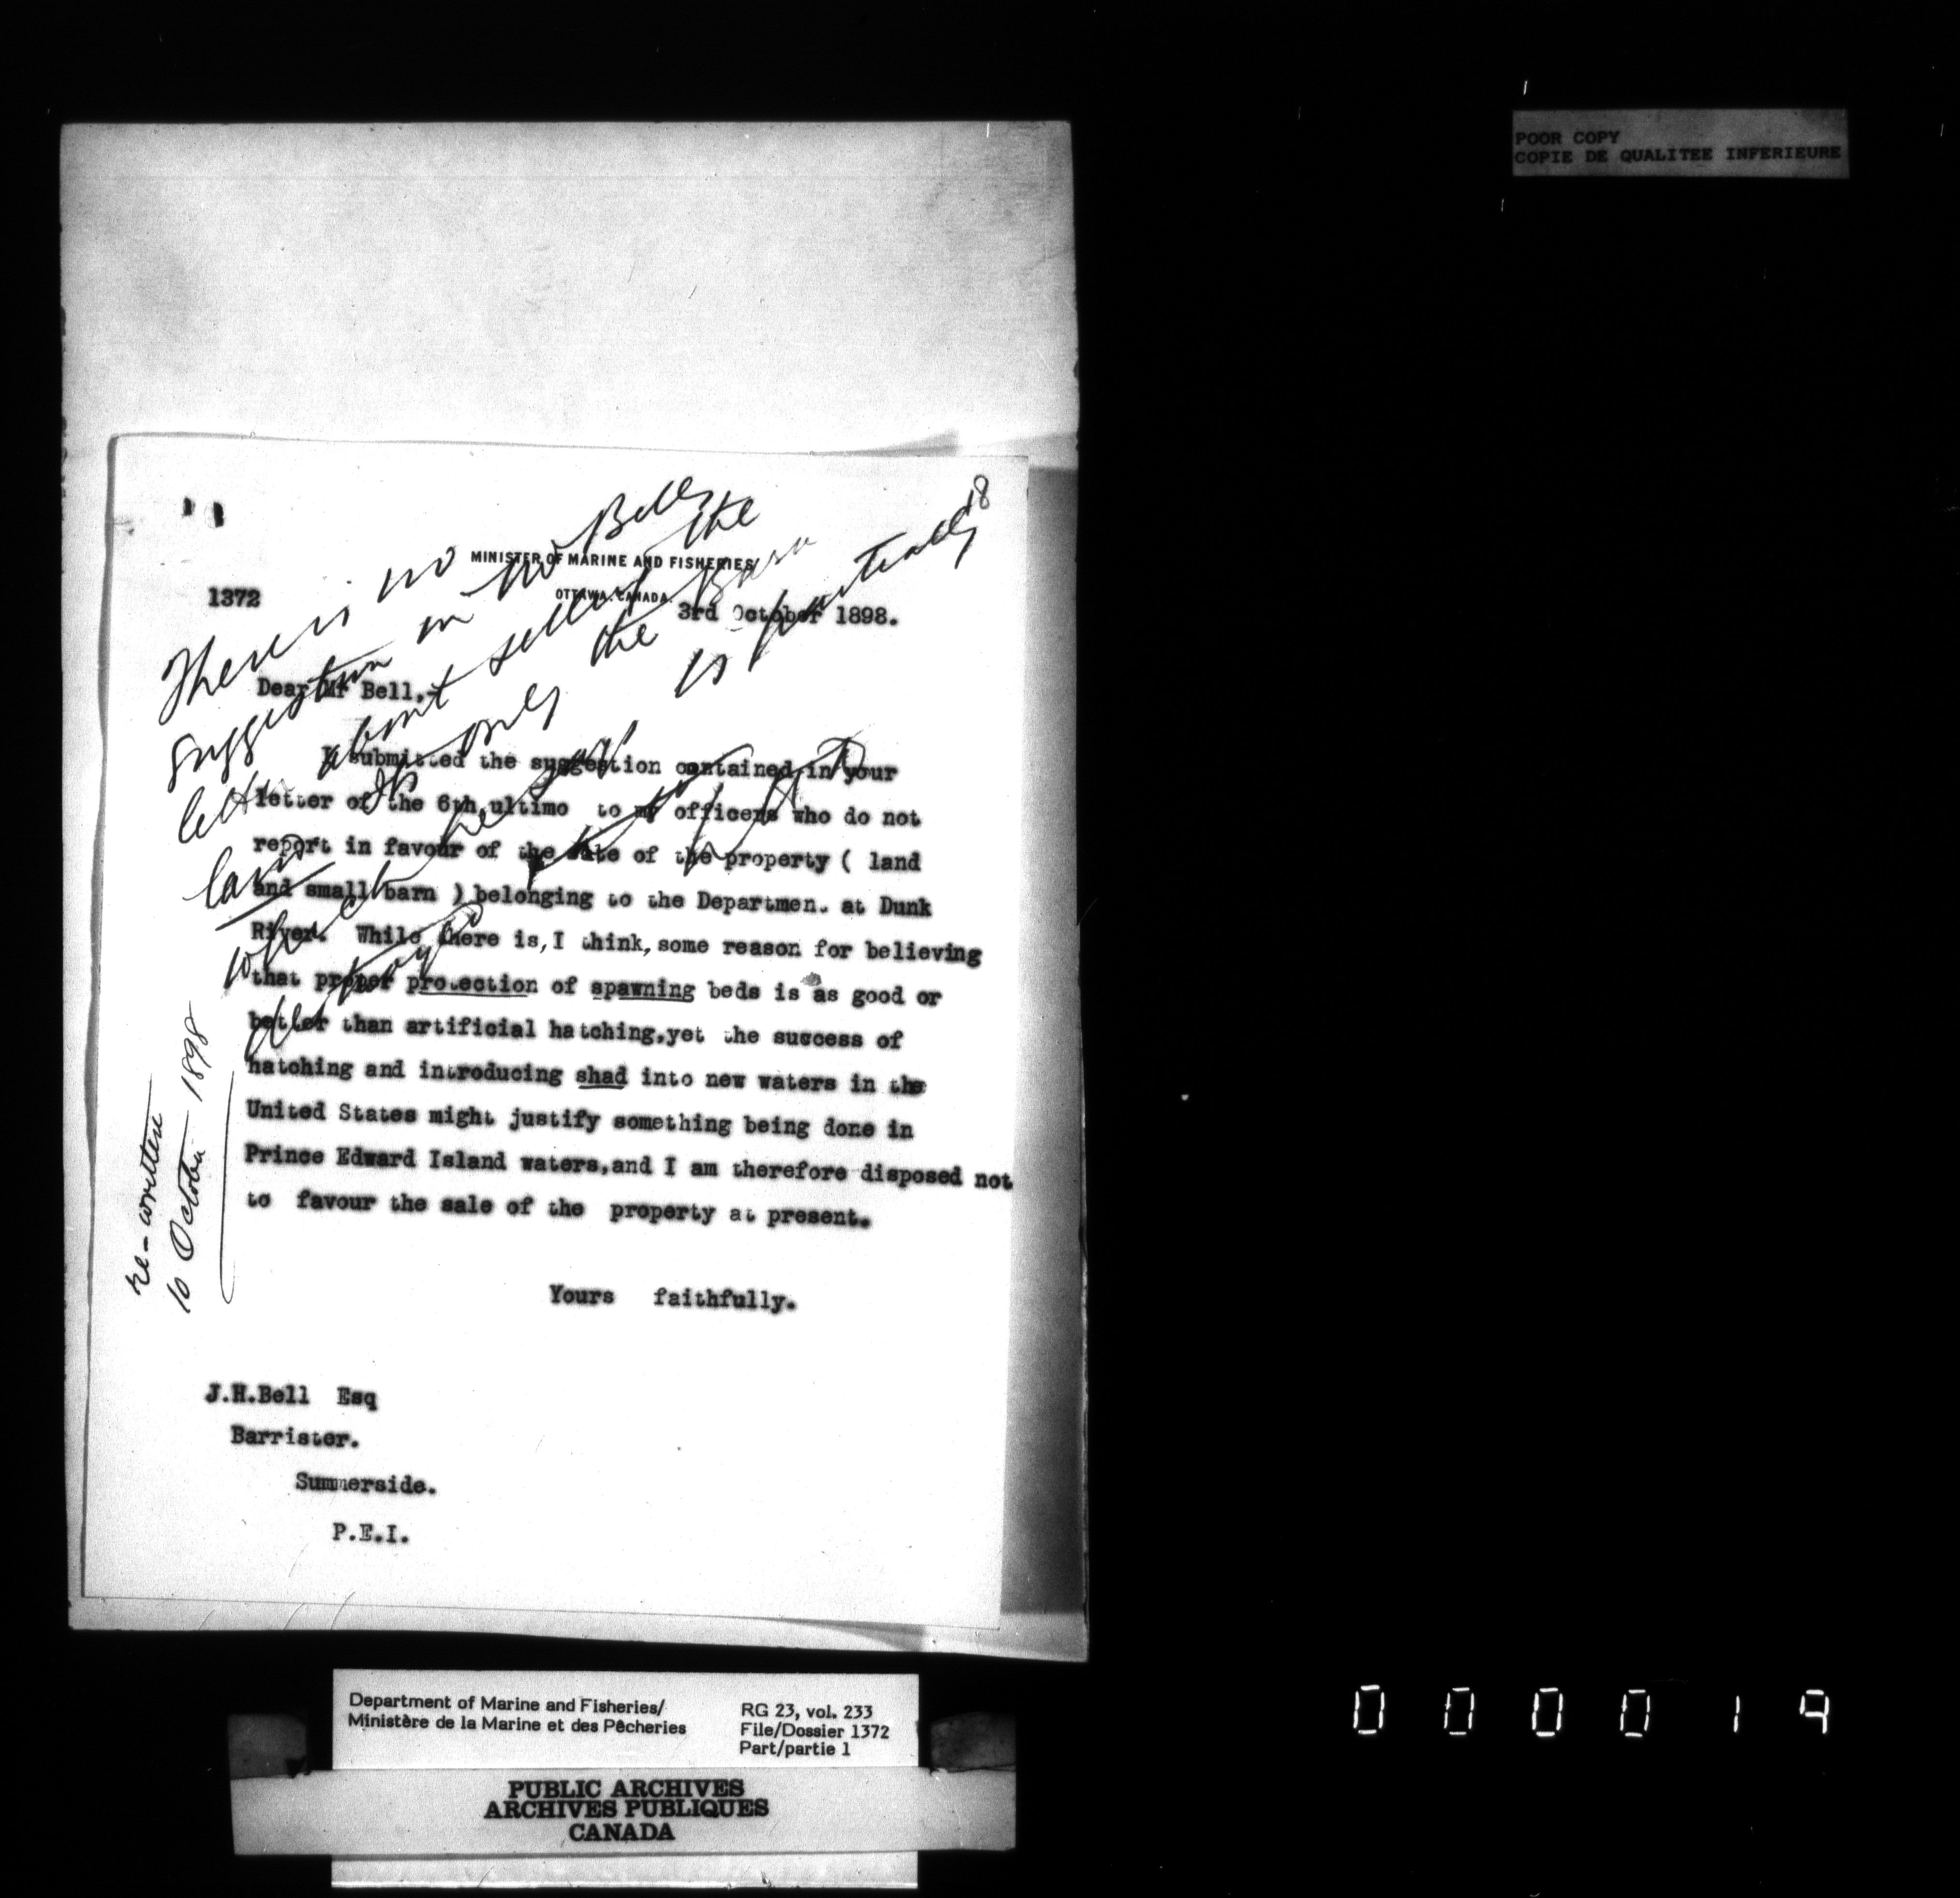 POOR COPY
COPIE DE QUALITEE INFERIEURE
18
MINISTER OF MARINE AND FISHERIES
OTTAWA, CANADA.
1372
3rd October 1898.
There is no
suggestion in Mr Bell's
letter about selling the
land It is only the Barn
which he says is partially
destroyed
Dear Mr Bell,-
I submitted the suggestion contained in your
letter of the 6th, ultimo to my officers who do not
report in favour of the sale of the property ( land
and small barn ) belonging to the Department at Dunk
River. While there is, I think, some reason for believing
that proper protection of spawning beds is as good or
better than artificial hatching,yet the success of
hatching and introducing shad into new waters in the
United States might justify something being done in
Prince Edward Island waters,and I am therefore disposed not
to favour the sale of the property at present.
re-written
10 October 1898
Yours faithfully.
J.H.Bell Esq
Barrister.
Summerside.
P.E.I.
Department of Marine and Fisheries/
Ministère de la Marine et des Pêcheries
RG 23, vol. 233
File/Dossier 1372
Part/partie 1
PUBLIC ARCHIVES
ARCHIVES PUBLIQUES
CANADA
000019